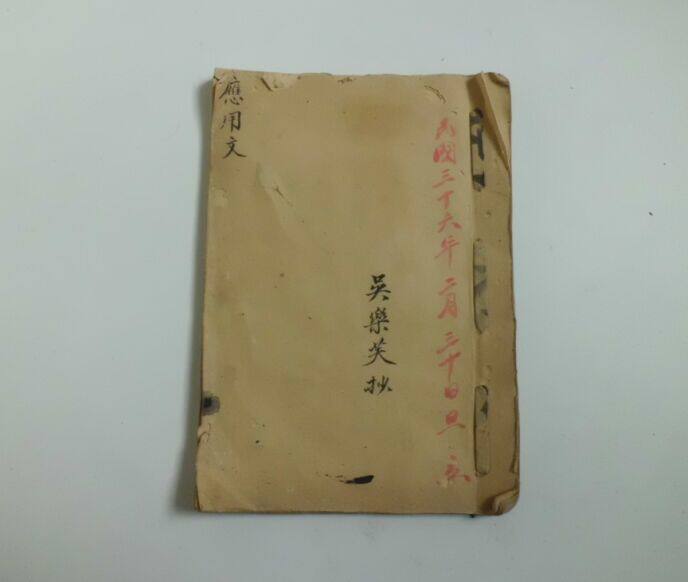 民國三十六年二月三十日旦立
吳樂芙抄
應用文